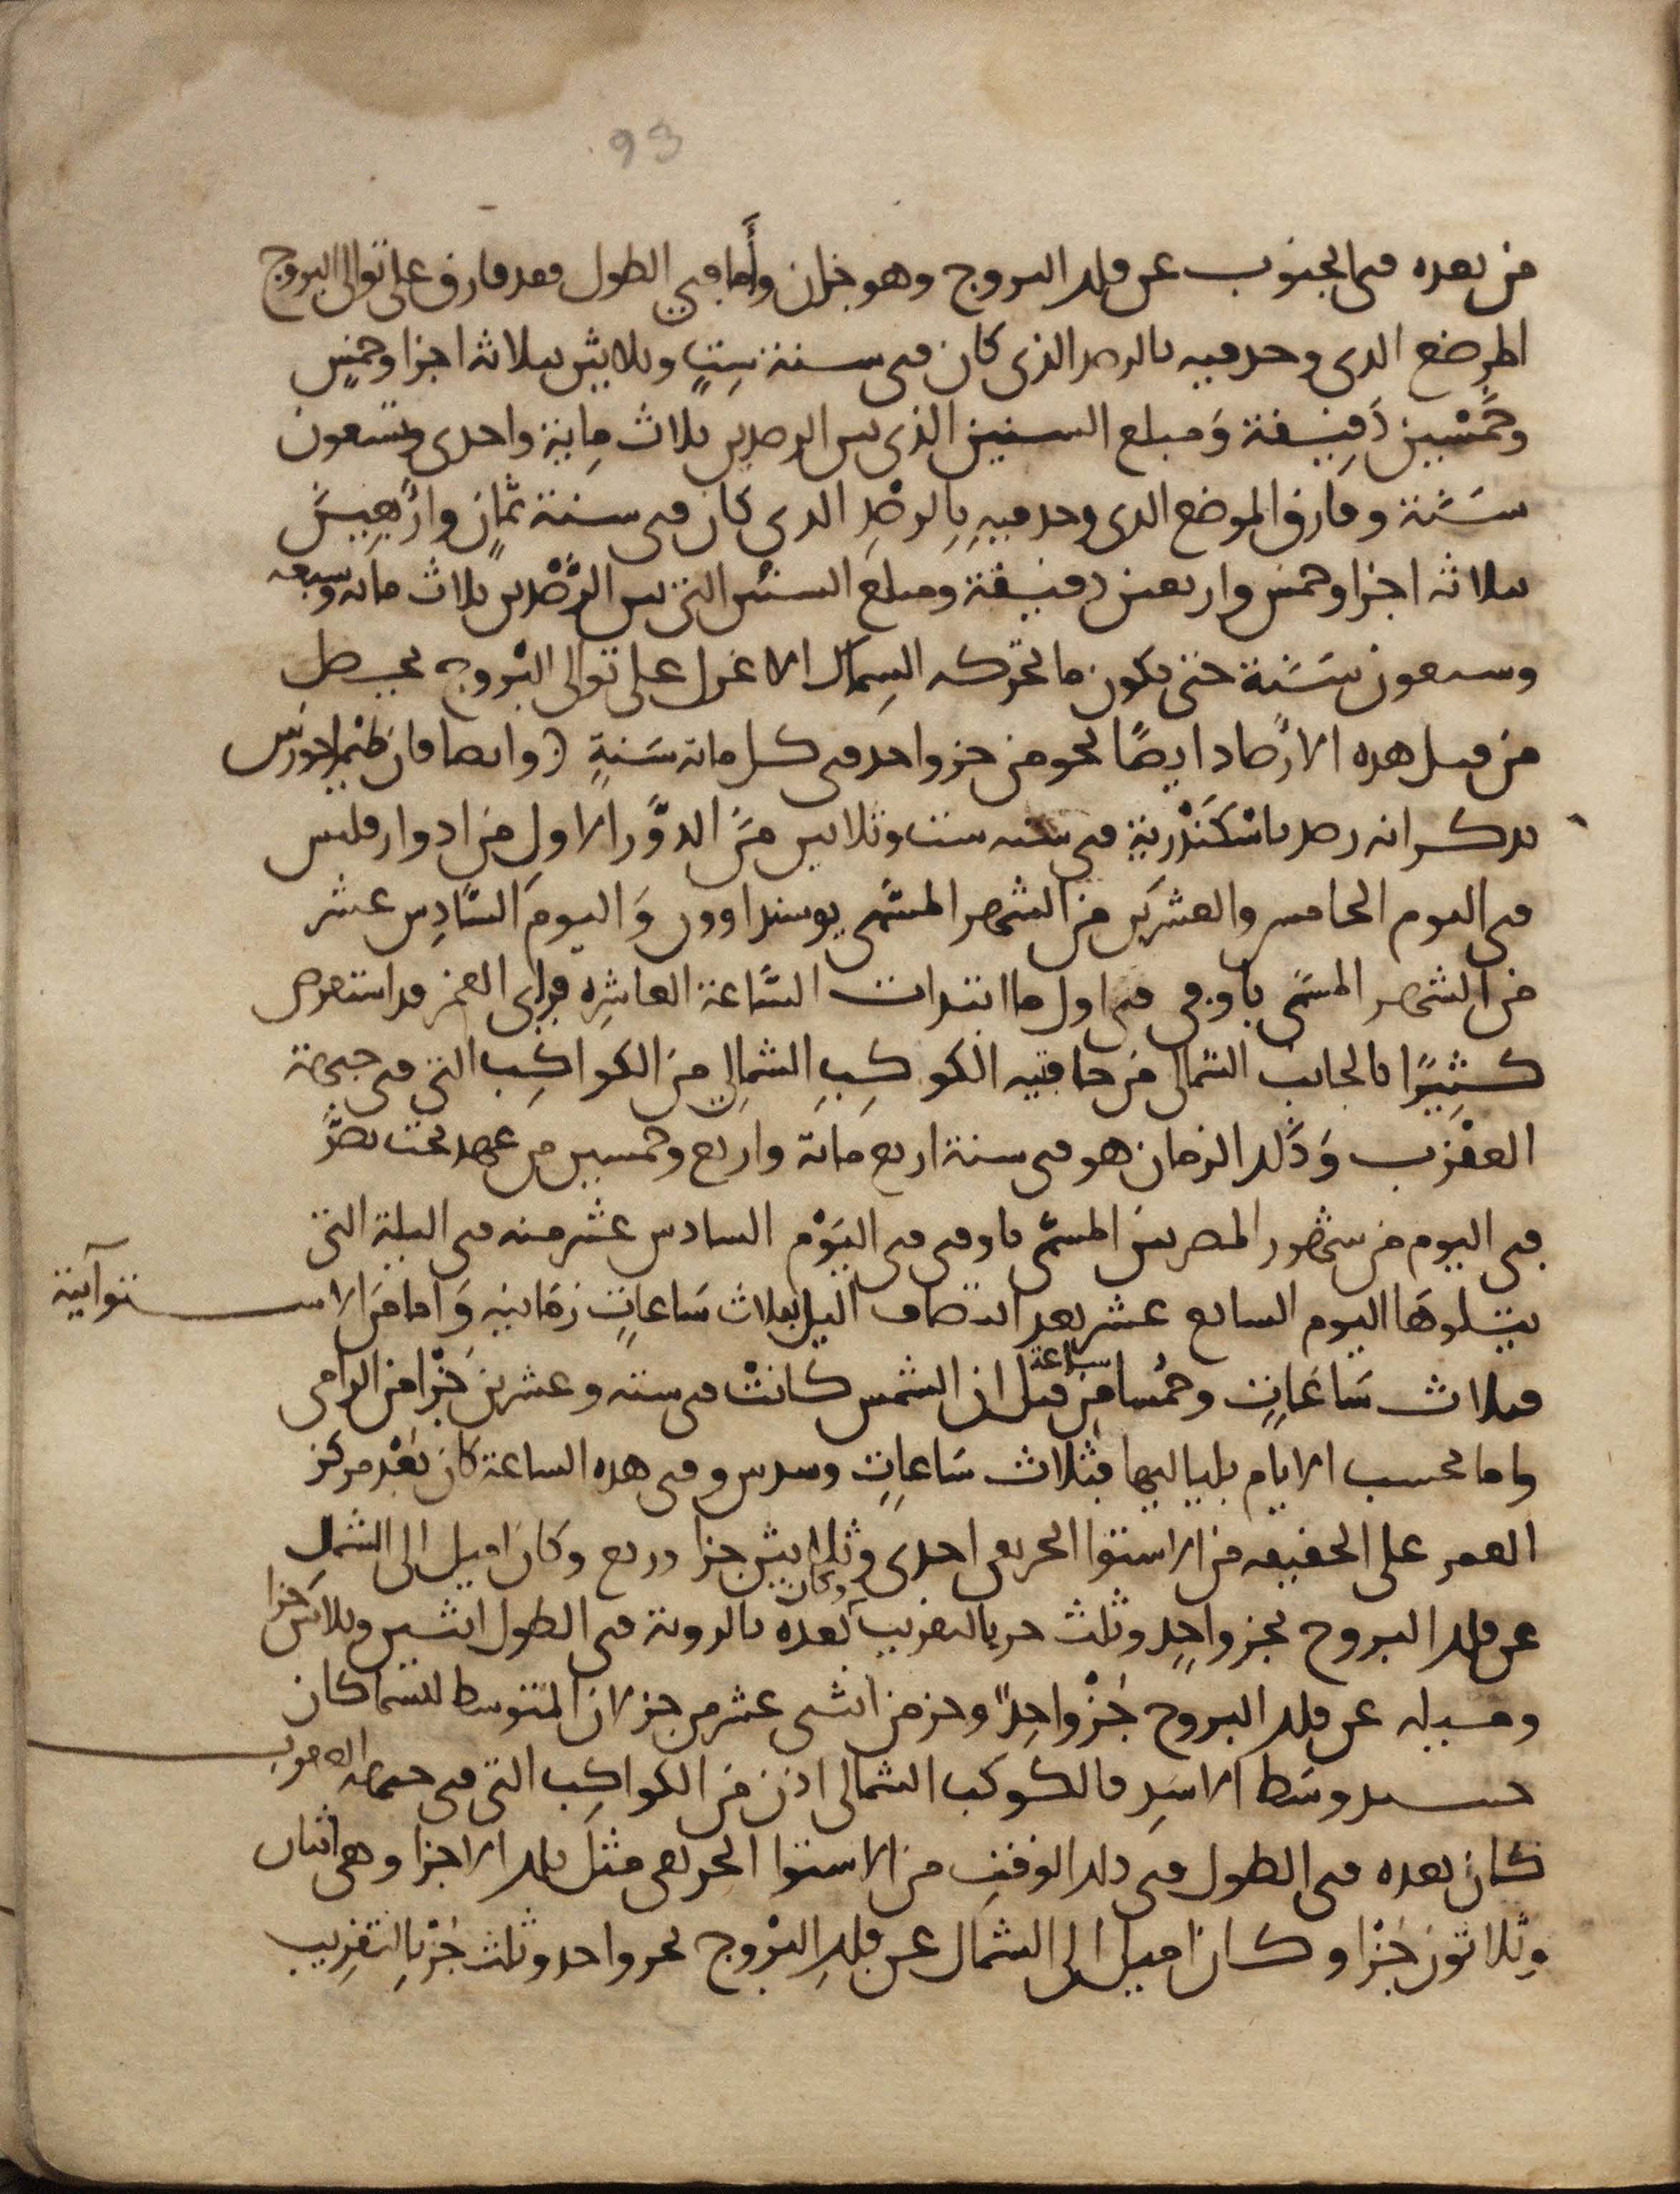 93
من بعده في الجنوب عن فلك البروج وهو جزان وأما في الطول فقد فارق على توالي البروج
الموضع الذي وجد فيه بالرصد الذي كان في سنة ستٍ وثلاثين بثلاثة اجزا وخمسٍ
وخمسين دقيقة ومبلغ السنين الذي بين الرصدين ثلاث ماية واحدى وتسعون
سنة وفارق الموضع الذي وجد فيه بالرصد الذي كان في سنة ثمانٍ واربعين
بثلاثة اجزا وخمس واربعين دقيقة ومبلغ السنين التي بين الرصدين ثلاث مائه وسبعه
وسبعون سنة حتى يكون ما تحركه السماك الاعزل على توالي البروج يحصل
من قبل هذه الارصاد ايضًا نحو من جزو واحد في كل مائة سنةٍ وايضا فان طيموخارس
يذكر انه رصد باسكندرية في سنه ست وثلاثين من الدور الاول من ادوار فلبس
في اليوم الخامس والعشرين من الشهر المسمى بوسنداوون واليوم السادس عشر
من الشهر المسمى باوفي في اول ما ابتدات الساعة العاشره فراى القمر قد استعرض
كثيرًا بالجانب الشمالي من حافتيه الكوكب الشمالي من الكواكب التي في جبهة
العقرب وذلك الزمان هو في سنة اربع مائة واربع وخمسين من عهد بخت نصر
في اليوم من شهور المصريين المسمى باوفي في اليوم السادس عشر منه في اليلة التي
يتلوها اليوم السابع عشر بعد انتصاف اليل بثلاث ساعاتٍ زمانيه واما من الاستوآيية
فبثلاث ساعاتٍ وخمسا ساعة من قبل ان الشمس كانت في سته وعشرين جزا من الرامي
واما بحسب الايام بلياليها فبثلاث ساعاتٍ وسدس وفي هذه الساعة كان بعد مركز
القمر على الحقيقه من الاستوا الخريفي احدى وثلاثين جزا وربع وكان اميل الى الشمال
عن فلك البروج بجزو واحدٍ وثلث جزو بالتقريب وكان بعده بالروية في الطول اثنين وثلاثين جزا
وميله عن فلك البروج جزوا واحدًا وجزو من اثني عشر من جزو لان المتوسط للسما كان
حينيد وسط الاسد فالكوكب الشمالي اذن من الكواكب التي في جبهه العقرب
كان بعده في الطول في ذلك الوقت من الاستوا الخريفي مثل تلك الاجزا وهي اثنان
وثلاثون جزا وكان اميل الى الشمال عن فلك البروج بجزو واحد وثلث جزو بالتقريب